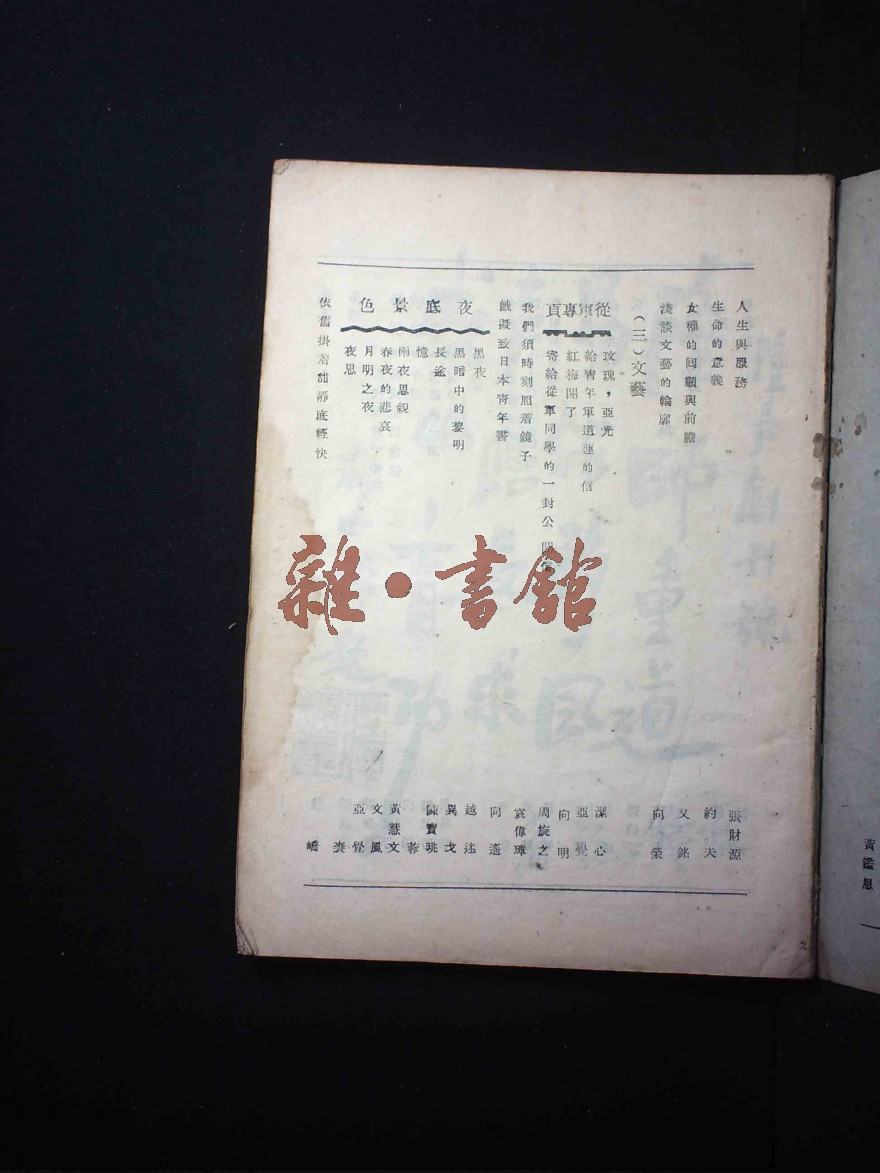 人生與服務
張財源
生命的意義
約夫
女權的回顧與前瞻
又銘
淺談文藝的輪廓
向榮
(三)文藝
從軍專頁
玫瑰，亞光
潔心
給青年軍道蓮的信
亞覺
紅梅開了
向明
寄給從軍同學的一封公開
周旋之
我們須時刻照着鏡子
袁偉璋
戲擬致日本青年書
向遙
夜底景色
黑夜
越迷
黑暗中的黎明
異戈
長途
陳寶珧
憶
蓉
雨夜思親
黃慧文
春夜的悲哀
文風
月明之夜
亞覺
夜思
依舊掛着甜靜底輕快
嶠
雜·書館
尊師重道
黃鑑恩